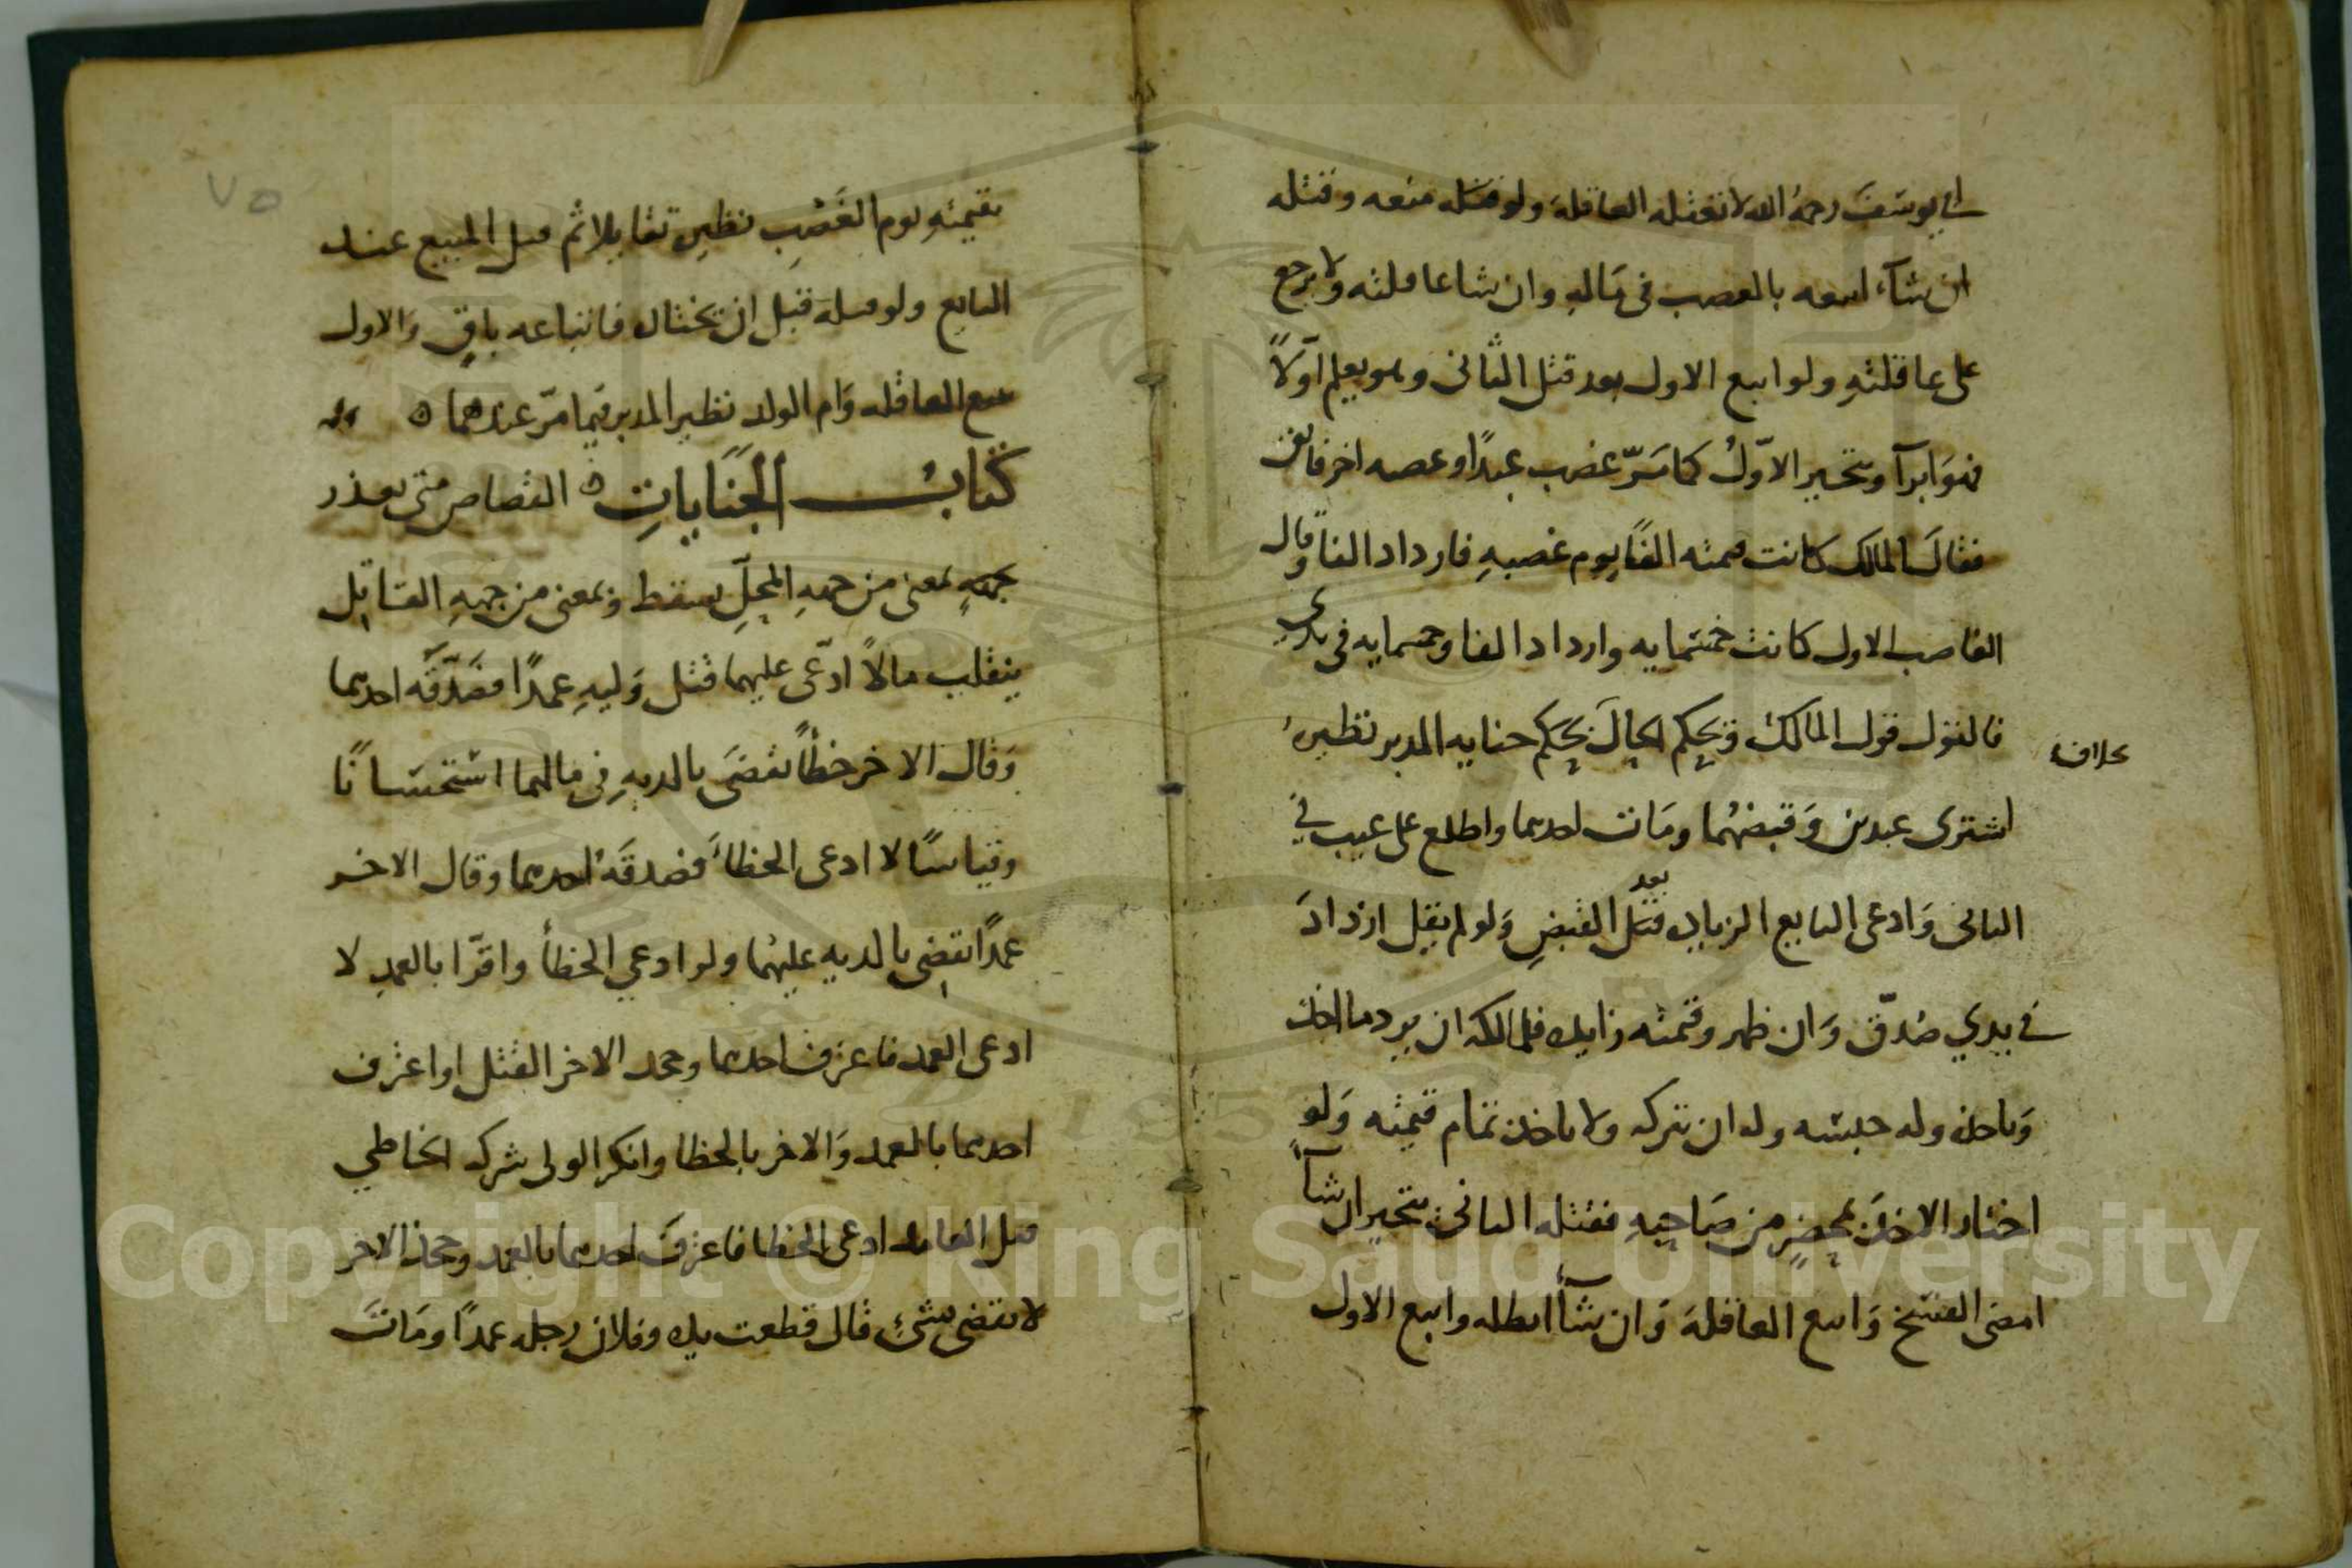 ابي يوسف رحمه الله لا تعقله العاقلة ولو قتله منعه وقتله
ان شاء اتبعه بالغصب في ماله وان شا عاقلته ولا يرجع
على عاقلته ولو اتبع الاول بعد قتل الثاني وهو يعلم اولا
فهو ابرآ ويتخير الاول كما مر غصب عبدا وغصبه اخر فابق
فقال المالك كانت قيمته الفا يوم غصبه فازداد الفا وقال
الغاصب الاول كانت خمسمايه وازداد الفا وخمسمايه في يدي
فالقول قول المالك ويحكم الحال بحكم جنايه المدبر نظيره
بخلاف
اشترى عبدين وقبضهما ومات احدهما واطلع على عيب في
الثاني وادعى البايع الزيادة بعد قتل القبض ولو لم يقل ازداد
في يدي صدق وان ظهر وقيمته زايدة فللمالك ان يرد ما اخذ
وياخذه وله حبسه وله ان يتركه ولا ياخذ تمام قيمته ولو
اختار الاخذ بمحضر من صاحبه فقتله الثاني يتخير ان شآ
امضى الفسخ واتبع العاقلة وان شآ ابطله واتبع الاول
٧٥
بقيمته يوم الغصب نظير تقايلا ثم قتل المبيع عند
البايع ولو قتله قبل ان يختار فاتباعه باق والاول
يتبع العاقله وام الولد نظير المدبر فيما مر عندهما
كتاب الجنايات القصاص متى تعذر
جهة لمعنى من جهه المحل يسقط وبمعنى من جهه القاتل
ينقلب مالا ادعى عليهما قتل وليه عمدا فصدقه احدهما
وقال الاخر خطأ يقضى بالديه في مالهما استحسانا
وقياسا لا ادعى الخطأ فصدقه احدهما وقال الاخر
عمدا يقضى بالديه عليهما ولو ادعي الخطأ واقرا بالعمد لا
ادعى العمد فاعترف احدهما وجحد الاخر القتل او اعترف
احدهما بالعمد والاخر بالخطا وانكر الولي شركه الخاطي
قتل العامد ادعى الخطا فاعترف احدهما بالعمد وجحد الاخر
لا يقضى بشئ قال قطعت يده وفلان رجله عمدا ومات
Copyright © King Saud University